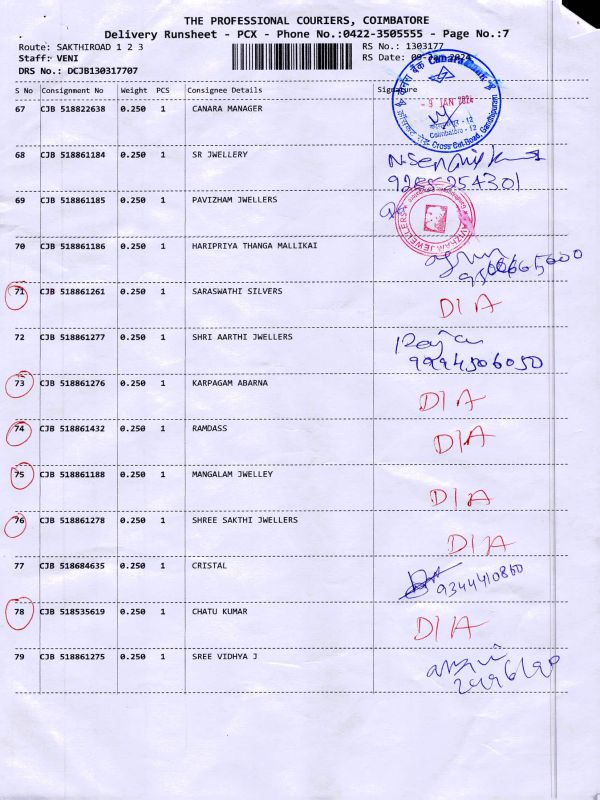 THE PROFESSIONAL COURIERS, COIMBATORE
Delivery Runsheet - PCX - Phone No.:0422-3505555 - Page No.:7
Route: SAKTHIROAD 1 2 3 RS No.: 1303177
Staff: VENI RS Date: 09-Jan-2024
DRS No.: DCJB130317707
S No Consignment No Weight PCS Consignee Details Signature
67 CJB 518822638 0.250 1 CANARA MANAGER
केनरा बैंक Canara Bank
- 9 JAN 2024
Coimbatore - 12
Cross Cut Road, Gandhipuram
68 CJB 518861184 0.250 1 SR JWELLERY
69 CJB 518861185 0.250 1 PAVIZHAM JWELLERS
JEWELLERS
70 CJB 518861186 0.250 1 HARIPRIYA THANGA MALLIKAI
71 CJB 518861261 0.250 1 SARASWATHI SILVERS DIA
72 CJB 518861277 0.250 1 SHRI AARTHI JWELLERS
9994506050
73 CJB 518861276 0.250 1 KARPAGAM ABARNA DIA
74 CJB 518861432 0.250 1 RAMDASS DIA
75 CJB 518861188 0.250 1 MANGALAM JWELLEY DIA
76 CJB 518861278 0.250 1 SHREE SAKTHI JWELLERS DIA
77 CJB 518684635 0.250 1 CRISTAL
9344410860
78 CJB 518535619 0.250 1 CHATU KUMAR DIA
79 CJB 518861275 0.250 1 SREE VIDHYA J